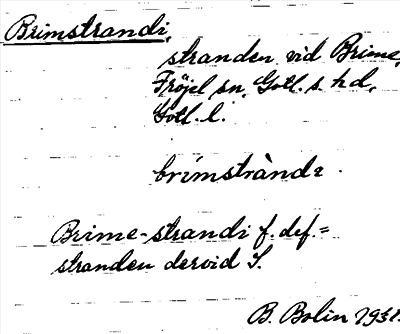 Brimstrandi,
stranden vid Brime,
Fröjel sn, Gotl. s. hd,
Gotl. l.
brímstràndı.
Brime-strandi f. def. =
stranden dervid S.
B. Bolin 1931.